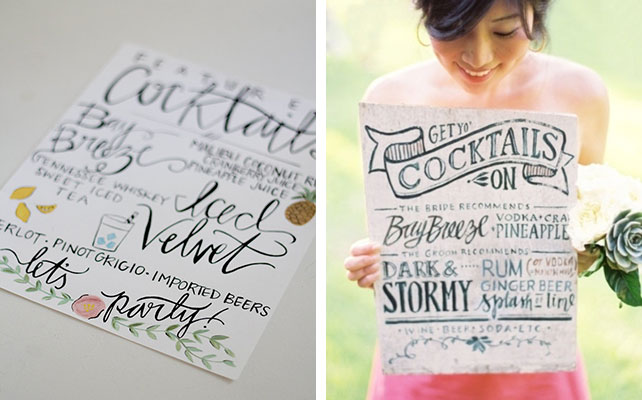 FEATURE
Cocktails
Bay
Breeze
MALIBU COCONUT RU
CRANBERRY JUICE
PINEAPPLE JUICE
TENNESSEE WHISKEY
SWEET ICED
TEA
Iced
Velvet
MERLOT · PINOT GRIGIO · IMPORTED BEERS
let's party!
GET YO'
COCKTAILS
ON
THE BRIDE RECOMMENDS
Bay Breeze
VODKA + CRAN
PINEAPPLE
THE GROOM RECOMMENDS
DARK &
STORMY
RUM (OR VODKA
GINGER BEER
splash OF lime
WINE · BEER · SODA · ETC.